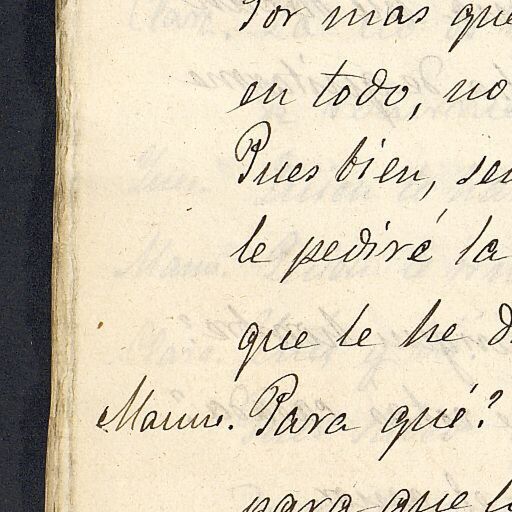 Por mas que
en todo, no
Pues bien, se
le pediré la
que le he d
Manu. Para qué?
para que l